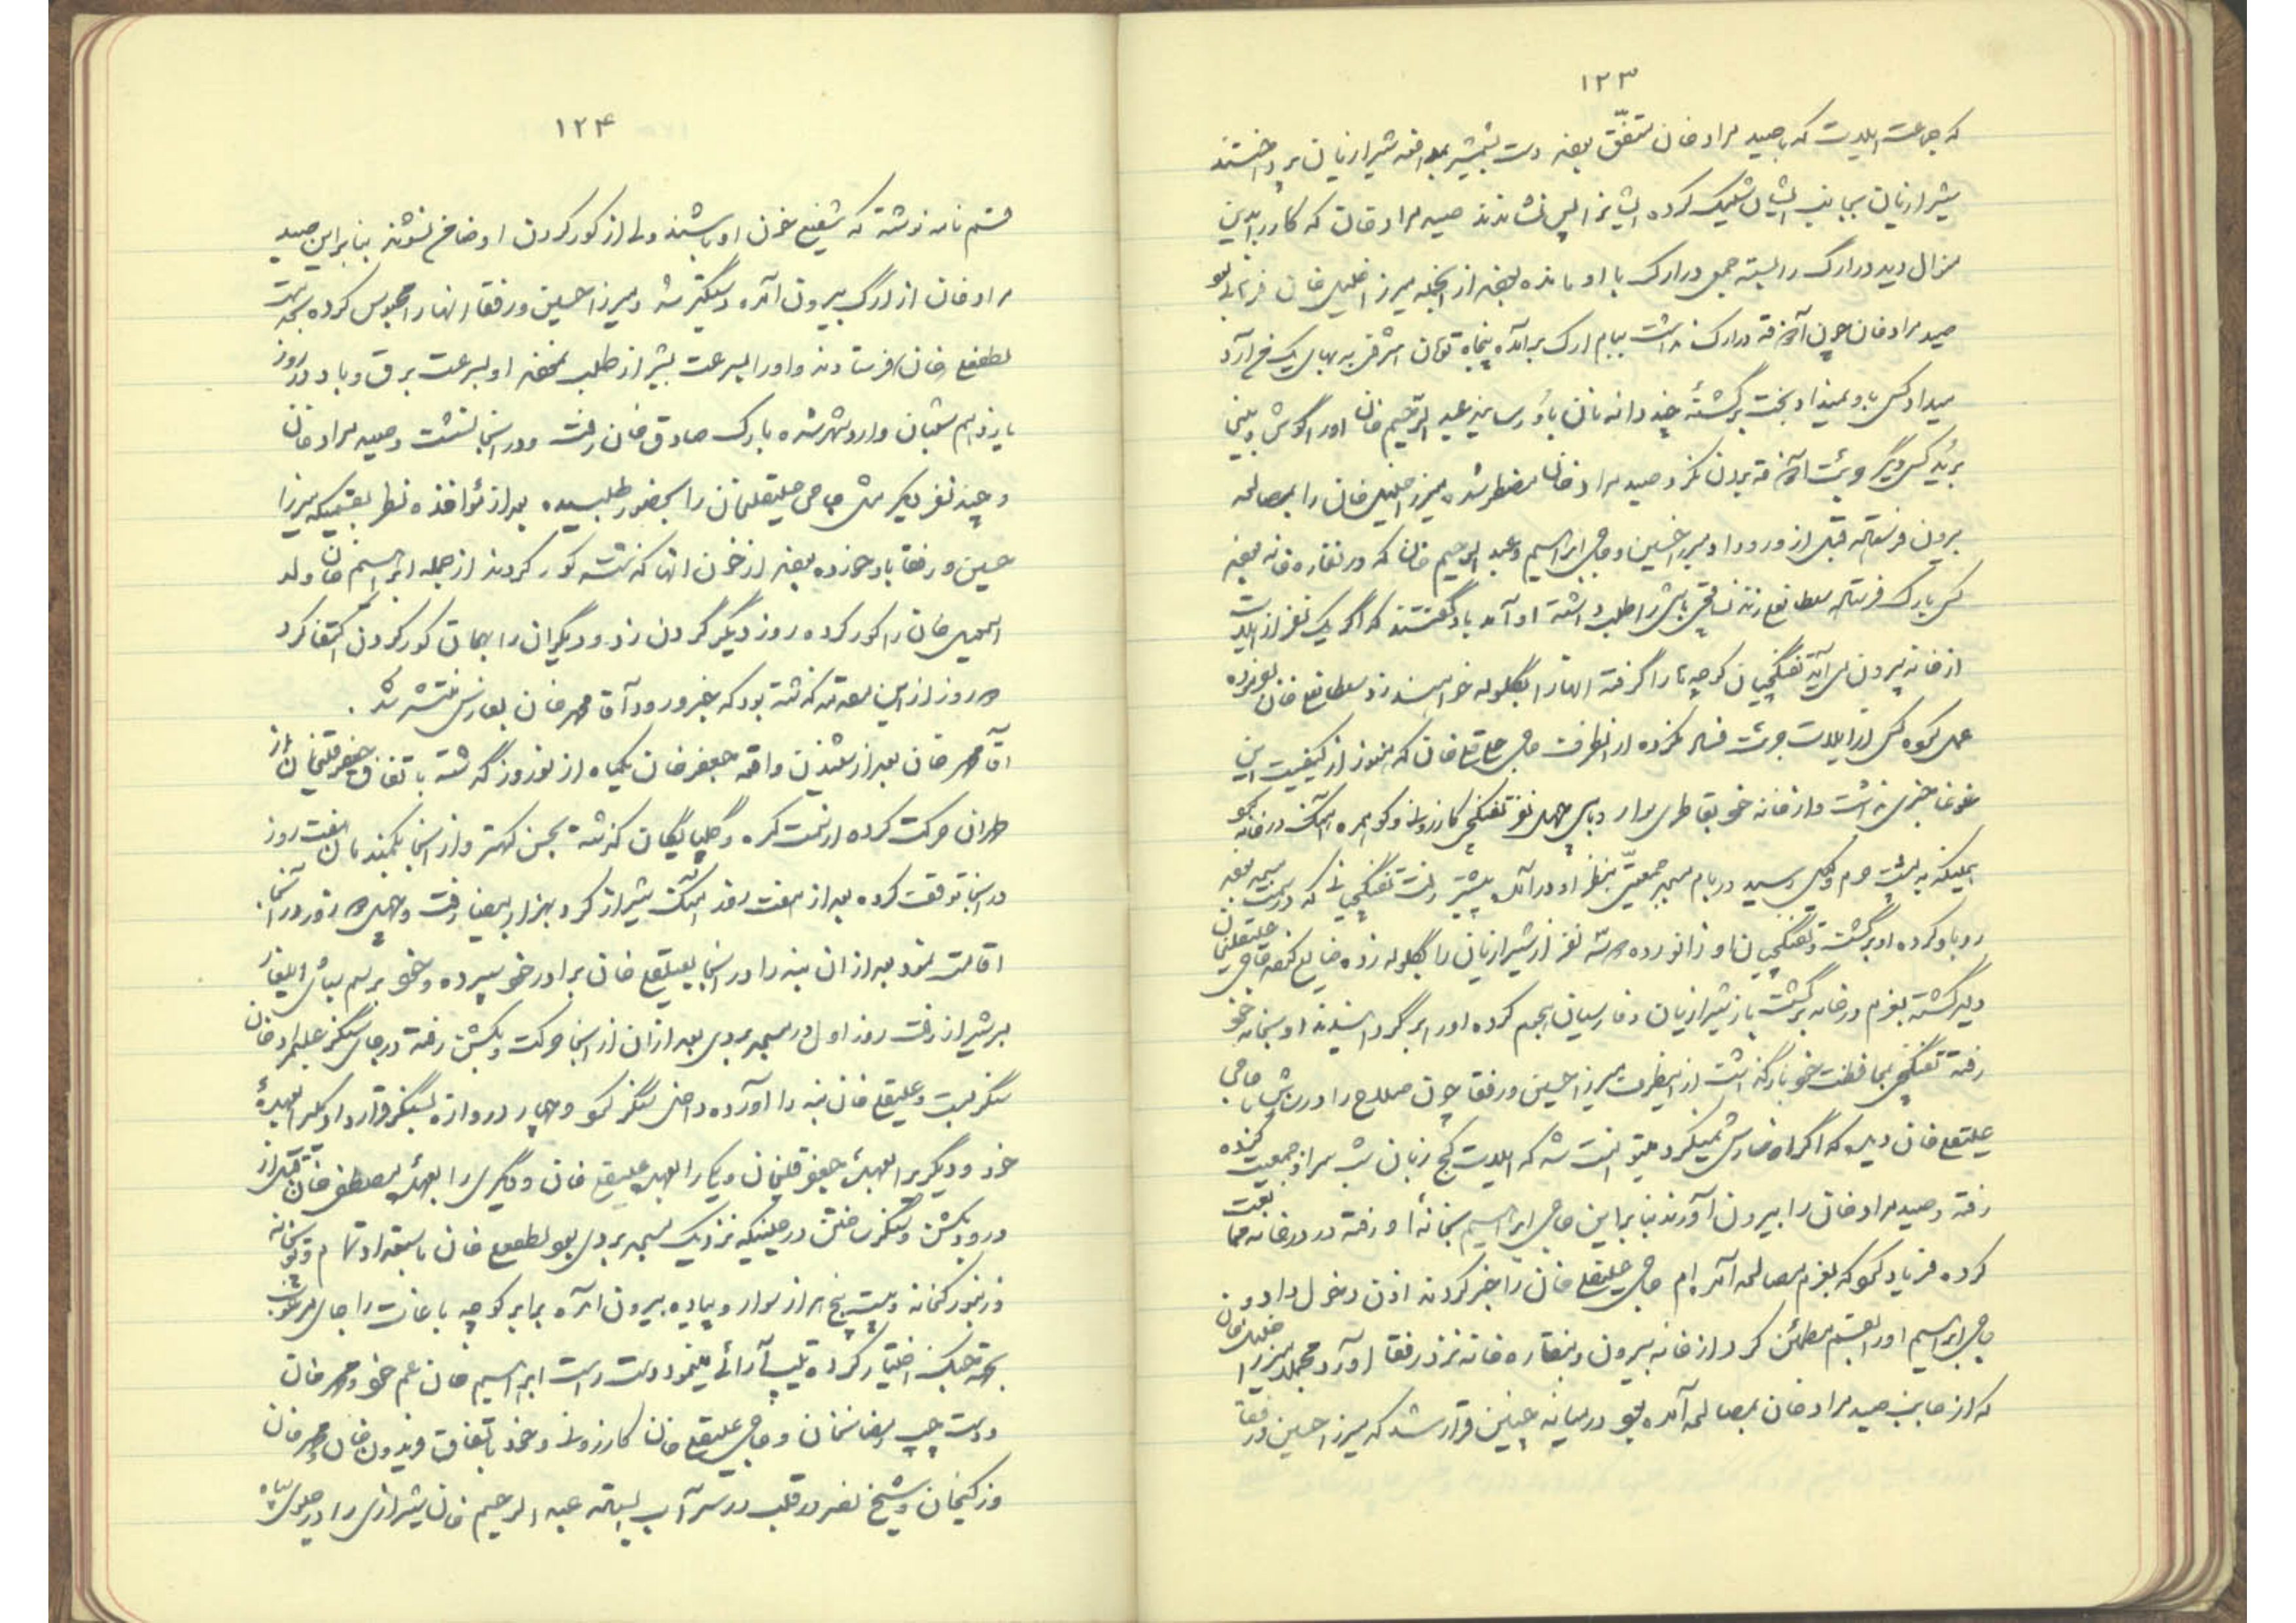 ۱۲۳
که جماعت ایلات که با صید مراد خان متفق بودند دست بشمشیر بمدافعه شیرازیان پرداختند
شیرازیان بجانب ایشان شلیک کرده ایشانرا پس نشاندند صید مراد خان که کار را بدین
منوال دید در ارک را بسته جمعی در ارک با او مانده بودند از آنجمله میرزا خلیل خان
صید مراد خان چون آذوقه در ارک نداشت ببام ارک برآمده پنجاه تومان اشرفی به بهای یک من آرد
میداد کسی باو نمیداد بخت برگشتهٔ چند دانه نان باو رسانید عبد الرحیم خان او را گوش و بینی
برید کسی دیگر جرئت آذوقه بردن نکرد صید مراد خان مضطر شده میرزا خلیل خان را بمصالحه
بیرون فرستاد قبل از ورود او میرزا حسین و حاجی ابراهیم و عبد الرحیم خان که در نقاره خانه بودند
کس بارک فرستاده سلطانعلی زند را طلب داشته او آمد باو گفتند که اگر یک نفر از ایلات
از خانه بیرون می آید تفنگچیان کوچه ها را گرفته آنها را بگلوله خواهند زد سلطانعلی خان
عمل نموده کسی از ایلات جرئت فساد نکرده از آنطرف حاجی علیقلی خان که هنوز از کیفیت این
غوغا خبری نداشت و از خانه خود بقاطری سوار و با چهل نفر تفنگچی کازرونی و کوهمره آهنگ در خانه نمود
همینکه به پشت حرم وکیل رسید در بام مسجد جمعیتی بنظر او در آمد پیشتر رفت تفنگچیانی که در پشت مسجد بودند
رو باو کرده او برگشت و تفنگچیان او زانو زده سه نفر از شیرازیان را بگلوله زده ضایع کردند حاجی علیقلیخان
دلیر گشته بعزم در خانه برگشت باز شیرازیان و فارسیان هجوم کرده او را برگردانیدند او بخانه خود
رفته تفنگچی بمحافظت خود باز گذاشت از اینطرف میرزا حسین و رفقا چون صلاح را در سازش با حاجی
علیقلی خان دیدند که اگر او سازش نمیکرد میتوانست شد که ایلات کج زبان شب بر سر او جمعیت کننده
رفته و صید مراد خان را بیرون آورند بنا بر این حاجی ابراهیم بخانهٔ او رفته در در خانه ممانعت
کرده فریاد نمود که بعزم مصالحه آمده ام حاجی علیقلی خان را خبر کردند اذن دخول داد و
حاجی ابراهیم او را بقسم مطمئن کرد از خانه بیرون و بنقاره خانه نزد رفقا آورد مجملا میرزا خلیل خان
که از جانب صید مراد خان بمصالحه آمده بود در میانه چنین قرار شد که میرزا حسین و رفقا
۱۲۴
قسم نامه نوشته که شفیع خون او باشند ولی از کور کردن او ضامن نشوند بنا بر این صید
مراد خان از ارک بیرون آمده دستگیر شد و میرزا حسین و رفقا آنها را محبوس کرده بجهت
لطفعلی خان فرستادند و او را بسرعت بشیراز طلب نمودند او بسرعت برق و باد در روز
یازدهم شعبان وارد شهر شده بارک صادق خان رفت و در آنجا نشست و صید مراد خان
و چند نفر دیگر مثل حاجی علیقلیخان را بحضور طلبیده بعد از مؤاخذه نظر بقسمیکه میرزا
حسین و رفقا یاد خورده بودند از خون آنها گذشته کور کردند از جمله ابراهیم خان ولد
اسمعیل خان را کور کرده روز دیگر گردن زد و دیگران را بهمان کور کردن اکتفا کرد
روز از این مقدمه گذشته بود که خبر ورود آقا محمد خان بفارس منتشر شد.
آقا محمد خان بعد از شنیدن واقعه جعفر خان یکماه از نوروز گذشته باتفاق جعفر قلیخان از
طهران حرکت کرده از سمت کره و گلپایگان گذشته بچمن کهنر و از آنجا بکمند مان هفت روز
در آنجا توقف کرده بعد از هفت روز آهنگ شیراز کرد بهزار بیضا رفت و چهل روز در آنجا
اقامت نمود بعد از آن بنه را در آنجا بعلیقلی خان برادر خود سپرده و خود برسم ایلغار
بر شیراز رفت روز اول در مسجد بردی بعد از آن از آنجا حرکت و بکشن رفته در جای سنگر علیمراد خان
سنگر بست و علیقلی خان بنه را آورده داخل سنگر نمود و چهار دروازه بسنگر قرار داد یکیرا بعهدهٔ
خود و دیگریرا بعهدهٔ جعفر قلیخان و یکیرا بعهدهٔ علیقلی خان و دیگری را بعهدهٔ مصطفی خان قبل از
ورود بکشن و سنگر ساختن در حینیکه نزدیک مسجد بردی بود لطفعلی خان با استعداد تمام و توپخانه
و زنبورکخانه و بیست پنج هزار سوار و پیاده بیرون آمده برابر کوچه باغات را جای
بجهة جنگ اختیار کرده تیپ آرائی مینمود دست راست ابراهیم خان عم خود و محمد خان
و دست چپ رضا خان و حاجی علیقلی خان کازرونی و خود باتفاق فریدون خان و محمد خان
و زکیخان و شیخ نصر در قلب در سر آب ایستاده عبد الرحیم خان شیرازی را در جلوی سپاه